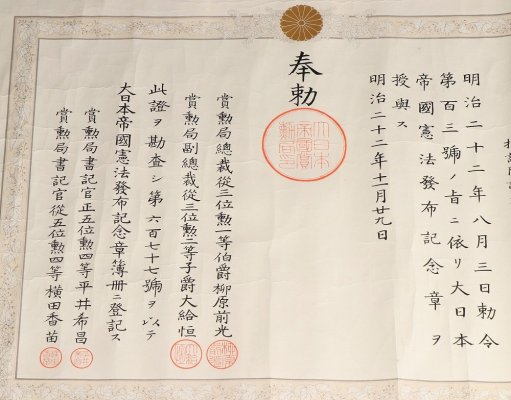 明治二十二年八月三日勅令
第百三號ノ旨ニ依リ大日本
帝國憲法發布記念章ヲ
授與ス
明治二十二年十一月廿九日
奉勅
賞勲局總裁從三位勲一等伯爵柳原前光
賞勲局副總裁從三位勲二等子爵大給恒
此證ヲ勘査シ第六百七十七號ヲ以テ
大日本帝國憲法發布記念章簿册ニ登記ス
賞勲局書記官正五位勲四等平井希昌
賞勲局書記官從五位勲四等横田香苗